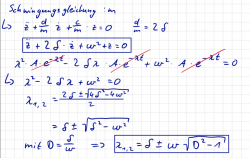 Schwingungsgleichung :m
↳ z̈ + d/m ż + c/m · z = 0    d/m = 2δ
z̈ + 2δ · ż + ω² + z = 0
λ² · A·e^(-λt) - 2δλ · A·e^(-λt) + ω² · A·e^(-λt) = 0
↳ λ² - 2δλ + ω² = 0
λ₁,₂ = (2δ ± √(4δ² - 4ω²))/2
= δ ± √(δ² - ω²)
mit D = δ/ω ⇒ λ₁,₂ = δ ± ω √(D² - 1)